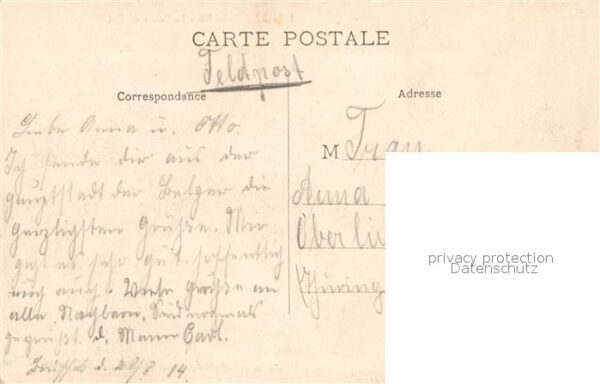 CARTE POSTALE
Feldpost
Correspondance
Adresse
Liebe Anna u. Otto.
Ich sende dir aus der
Hauptstadt der Belger die
herzlichsten Grüße. Mir
geht es sehr gut, hoffentlich
euch auch. Viele Grüße an
alle Nachbarn. Seid nochmals
gegrüßt d. Mann Carl.
Brüssel d. 28/8 14.
M Frau
Anna
Oberli
Thüring
privacy protection
Datenschutz